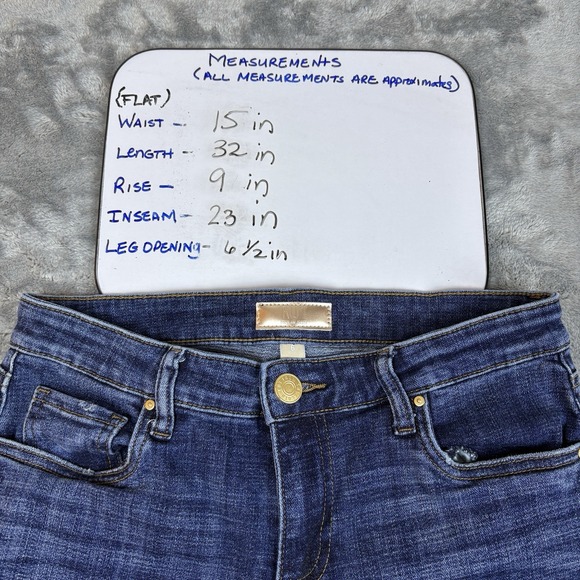 MEASUREMENTS
(ALL MEASUREMENTS ARE APPROXIMATES)
(FLAT)
WAIST - 15 in
LENGTH - 32 in
RISE - 9 in
INSEAM - 23 in
LEG OPENING - 6 1/2 in